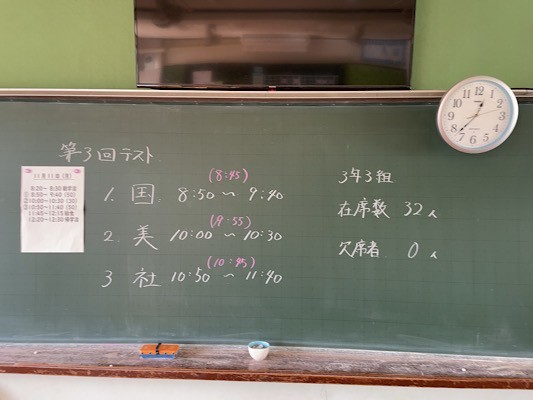 第3回テスト
11月11日(月)
8:20～ 8:30 朝学活
①8:50～ 9:40 (50)
②10:00～10:30 (30)
③10:50～11:40 (50)
11:45～12:15 給食
12:20～12:30 帰学活
(8:45)
1. 国 8:50 ～ 9:40
(9:55)
2. 美 10:00 ～ 10:30
(10:45)
3 社 10:50 ～ 11:40
3年3組
在席数 32人
欠席者 0人
12
1
2
3
4
5
6
7
8
9
10
11